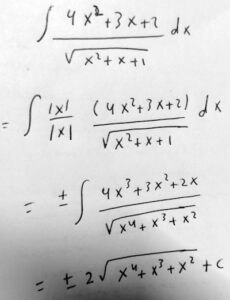 ∫ (4x²+3x+2)/√(x²+x+1) dx
= ∫ |x|/|x| (4x²+3x+2)/√(x²+x+1) dx
= ± ∫ (4x³+3x²+2x)/√(x⁴+x³+x²)
= ± 2√(x⁴+x³+x²) + c